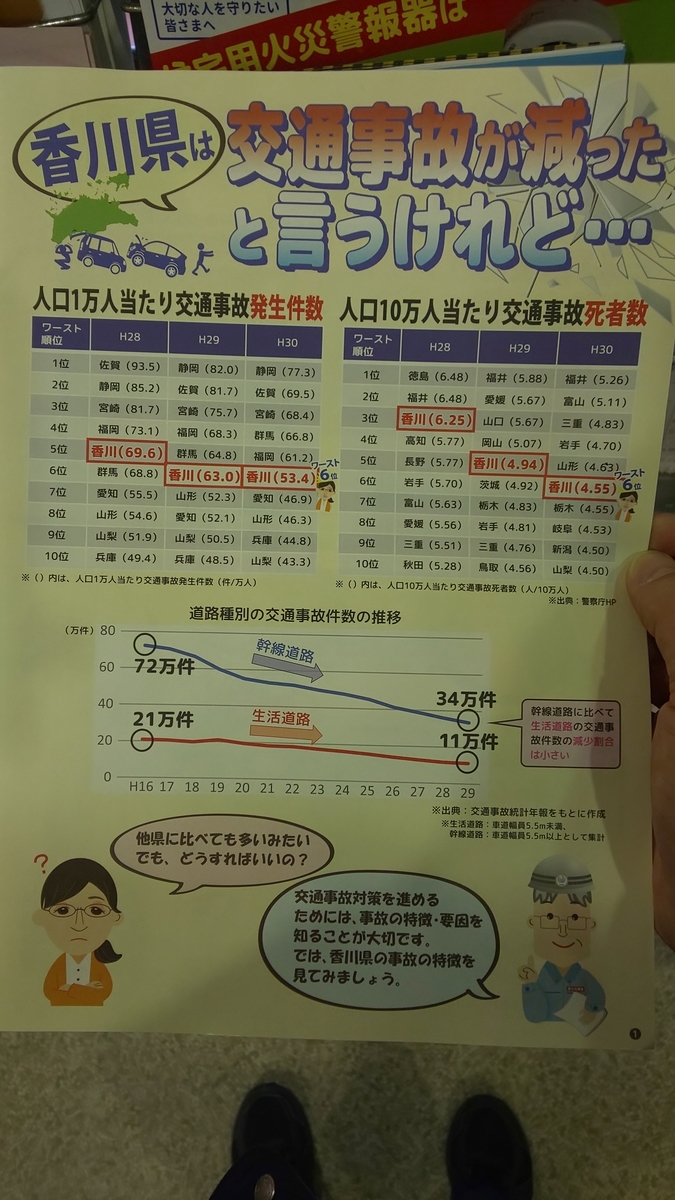 大切な人を守りたい
皆さまへ
住宅用火災警報器は
香川県は
交通事故が減った
と言うけれど…
人口1万人当たり交通事故発生件数
ワースト順位 H28 H29 H30
1位 佐賀（93.5） 静岡（82.0） 静岡（77.3）
2位 静岡（85.2） 佐賀（81.7） 佐賀（69.5）
3位 宮崎（81.7） 宮崎（75.7） 宮崎（68.4）
4位 福岡（73.1） 福岡（68.3） 群馬（66.8）
5位 香川（69.6） 群馬（64.8） 福岡（61.2）
6位 群馬（68.8） 香川（63.0） 香川（53.4）
ワースト6位
7位 愛知（55.5） 山形（52.3） 愛知（46.9）
8位 山形（54.6） 愛知（52.1） 山形（46.3）
9位 山梨（51.9） 山梨（50.5） 兵庫（44.8）
10位 兵庫（49.4） 兵庫（48.5） 山梨（43.3）
※（）内は、人口1万人当たり交通事故発生件数（件/万人）
人口10万人当たり交通事故死者数
ワースト順位 H28 H29 H30
1位 徳島（6.48） 福井（5.88） 福井（5.26）
2位 福井（6.48） 愛媛（5.67） 富山（5.11）
3位 香川（6.25） 山口（5.67） 三重（4.83）
4位 高知（5.77） 岡山（5.07） 岩手（4.70）
5位 長野（5.77） 香川（4.94） 山形（4.63）
6位 岩手（5.70） 茨城（4.92） 香川（4.55）
ワースト6位
7位 富山（5.63） 栃木（4.83） 栃木（4.55）
8位 愛媛（5.56） 岩手（4.81） 岐阜（4.53）
9位 三重（5.51） 三重（4.76） 新潟（4.50）
10位 秋田（5.28） 鳥取（4.56） 山梨（4.50）
※（）内は、人口10万人当たり交通事故死者数（人/10万人）
※出典：警察庁HP
道路種別の交通事故件数の推移
（万件）
80
60
40
20
0
幹線道路
72万件
34万件
生活道路
21万件
11万件
H16 17 18 19 20 21 22 23 24 25 26 27 28 29
幹線道路に比べて
生活道路の交通事
故件数の減少割合
は小さい
※出典：交通事故統計年報をもとに作成
※生活道路：車道幅員5.5m未満、
幹線道路：車道幅員5.5m以上として集計
他県に比べても多いみたい
でも、どうすればいいの？
?
交通事故対策を進める
ためには、事故の特徴・要因を
知ることが大切です。
では、香川県の事故の特徴を
見てみましょう。
1